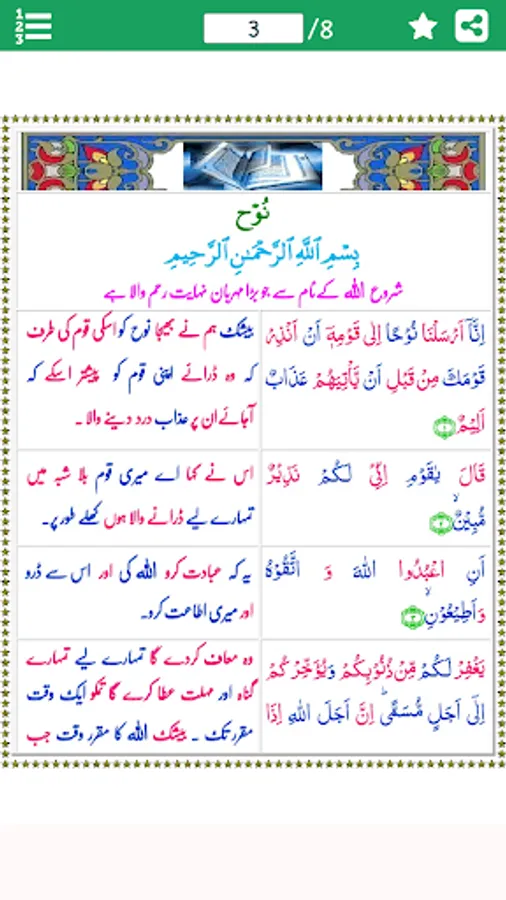 1
2
3
3 /8
نُوْح
بِسْمِ اللّٰهِ الرَّحْمٰنِ الرَّحِيْمِ
شروع اللہ کے نام سے جو بڑا مہربان نہایت رحم والا ہے
اِنَّاۤ اَرْسَلْنَا نُوْحًا اِلٰى قَوْمِهٖۤ اَنْ اَنْذِرْ
قَوْمَكَ مِنْ قَبْلِ اَنْ يَّاْتِيَهُمْ عَذَابٌ
اَلِيْمٌ ۝۱
بیشک ہم نے بھیجا نوح کو اسکی قوم کی طرف
کہ وہ ڈرائے اپنی قوم کو پیشتر اسکے کہ
آجائے ان پر عذاب درد دینے والا ۔
قَالَ يٰقَوْمِ اِنِّيْ لَكُمْ نَذِيْرٌ
مُّبِيْنٌ ۙ ۝۲
اس نے کہا اے میری قوم بلا شبہ میں
تمہارے لیے ڈرانے والا ہوں کھلے طور پر۔
اَنِ اعْبُدُوا اللهَ وَ اتَّقُوْهُ
وَاَطِيْعُوْنِ ۙ ۝۳
یہ کہ عبادت کرو اللہ کی اور اس سے ڈرو
اور میری اطاعت کرو۔
يَغْفِرْ لَكُمْ مِّنْ ذُنُوْبِكُمْ وَيُؤَخِّرْكُمْ
اِلٰۤى اَجَلٍ مُّسَمًّى ؕ اِنَّ اَجَلَ اللهِ اِذَا
وہ معاف کردے گا تمہارے لیے تمہارے
گناہ اور مہلت عطا کرے گا تمکو ایک وقت
مقرر تک ۔ بیشک اللہ کا مقرر وقت جب